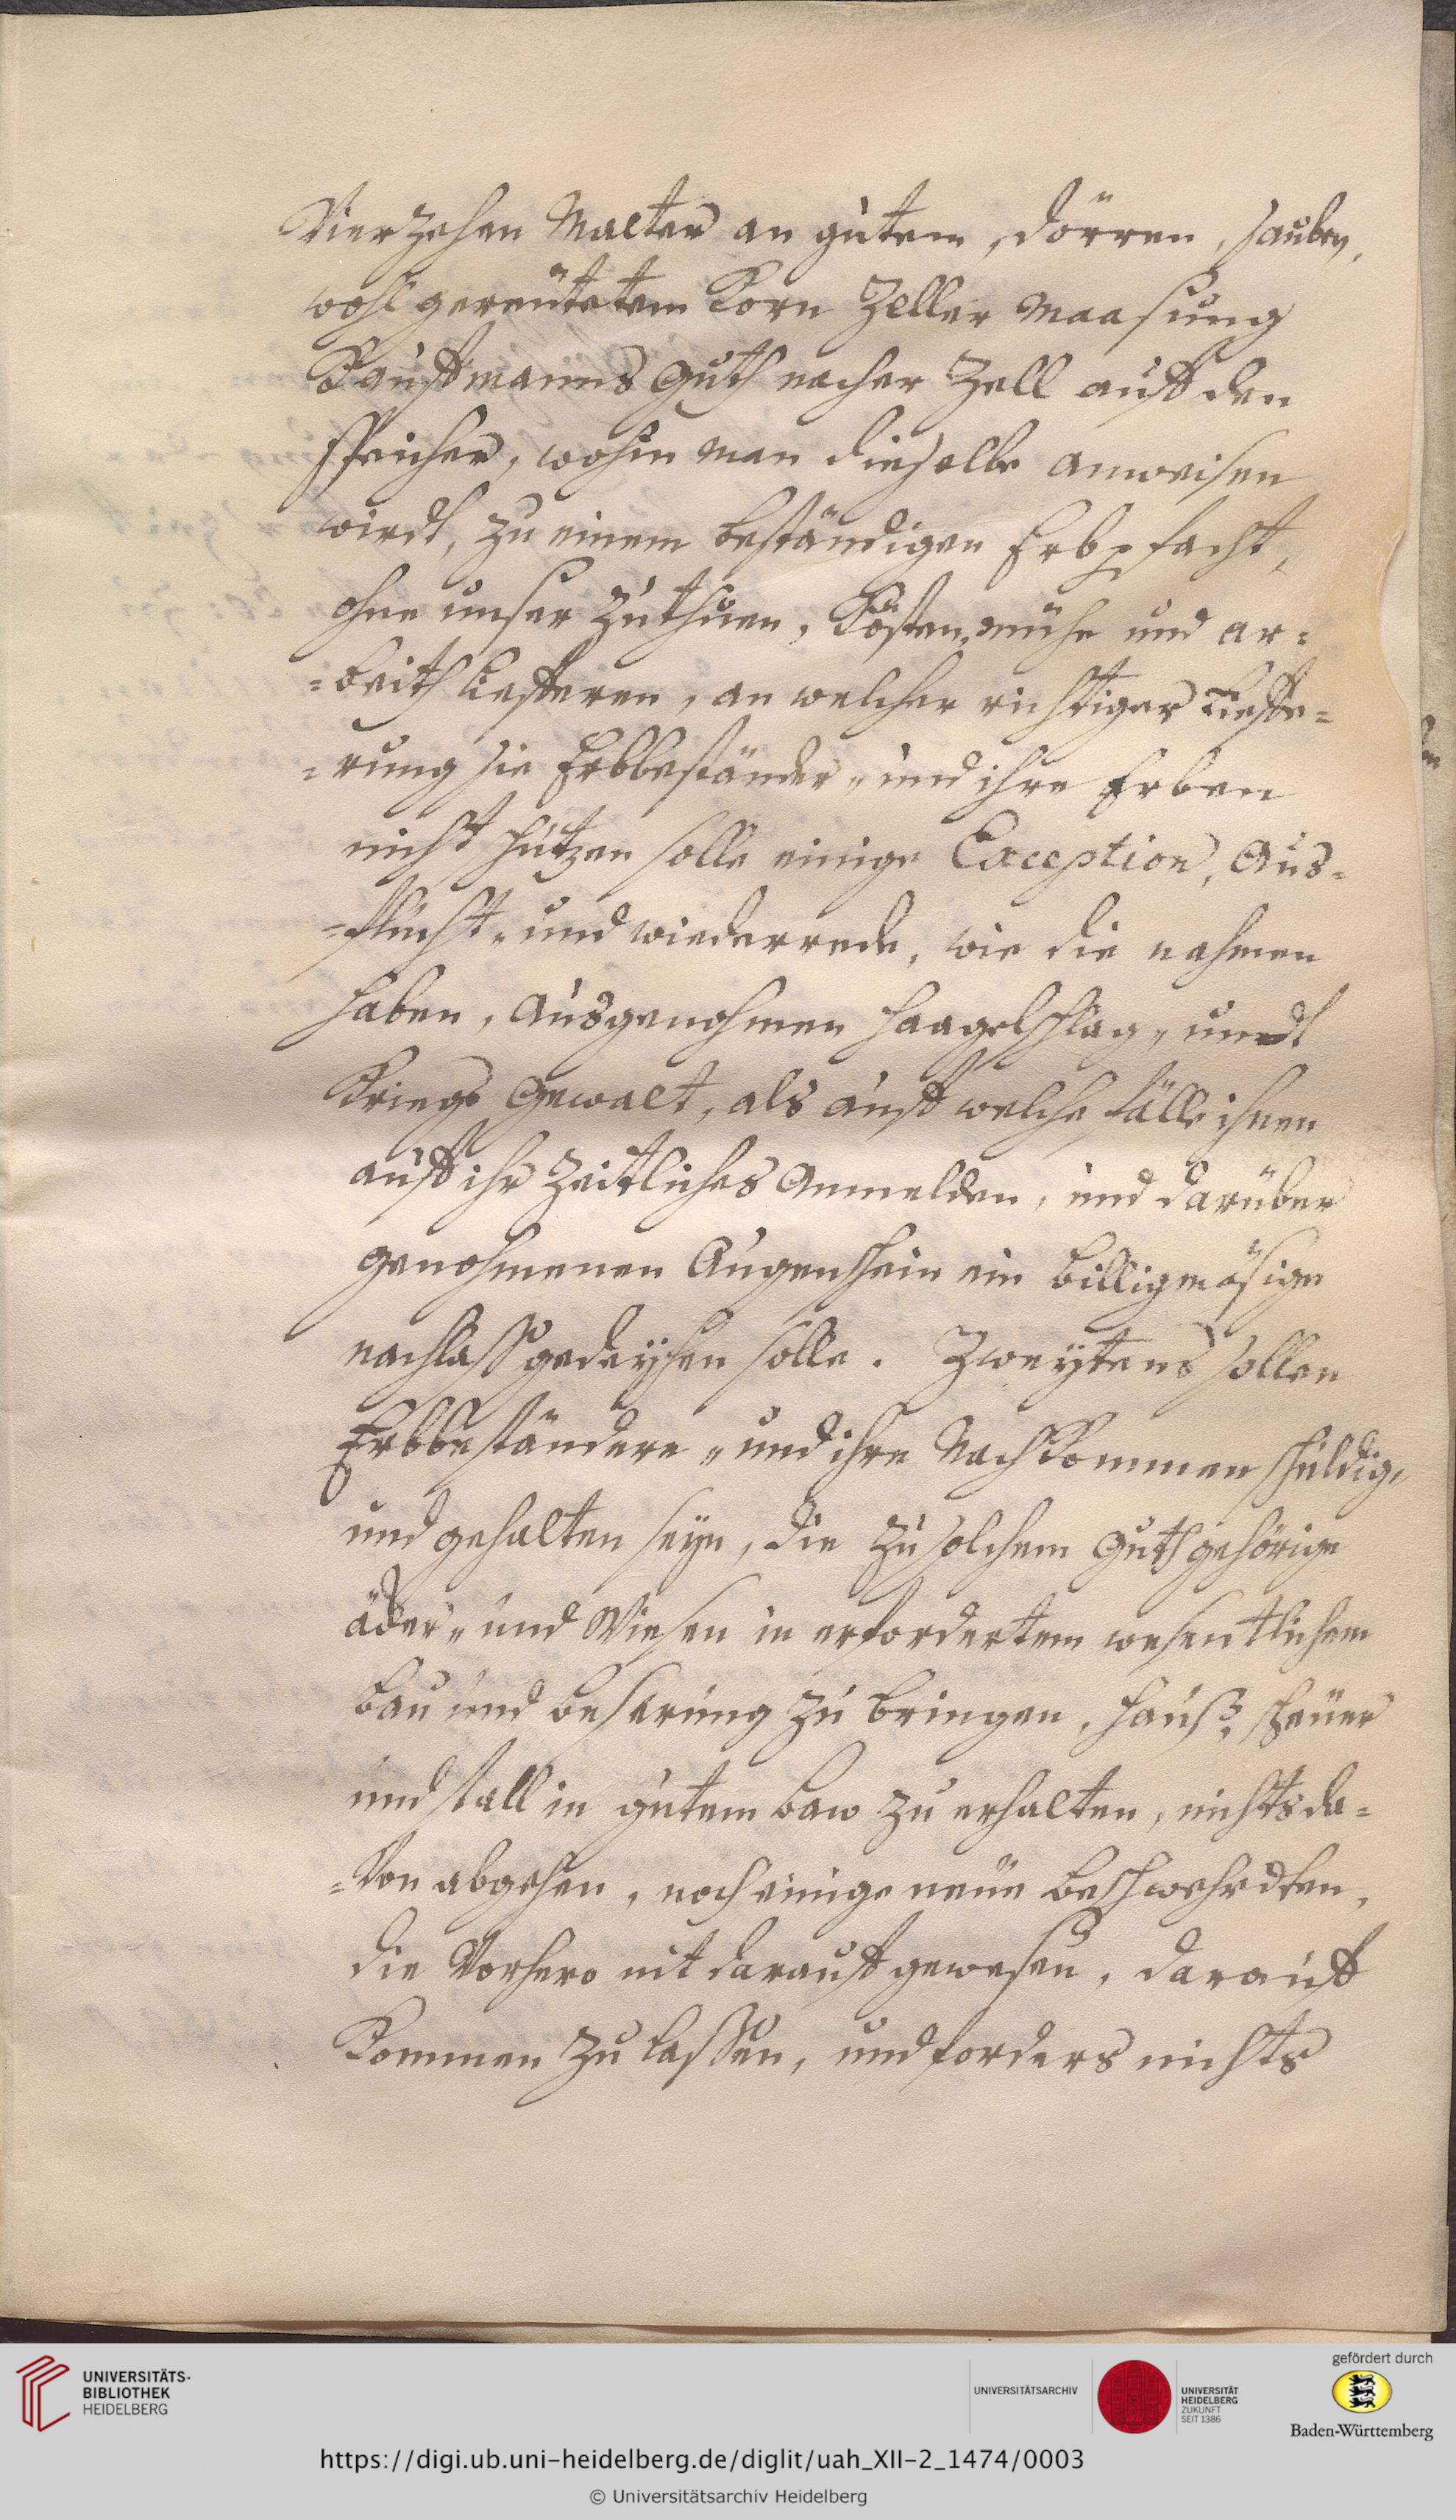 Vierzehen Malter an gutem, dörren, sauber,
wohl gereütetem Korn Zeller Maasung
Kauffmanns Guth nacher Zell auff den
speicher, wohin man dieselbe anweisen
wirdt, zu einem beständigen Erbpfacht,
ohne unser Zuthuen, Kösten, mühe und ar=
=beith liefferen, an welcher richtiger Lieffe=
=rung sie Erbbeständer, und ihre Erben
nicht schützen solle einige Exception, Aus=
=flucht, und wiederrede, wie die nahmen
haben, ausgenohmen haagelschlag, undt
Kriegs Gewalt, als auff welche fälle ihnen
auff ihr Zeitliches Anmelden, und darüber
genohmenen Augenschein ein billigmäsige
nachlaß gedeyhen solle. Zweytens sollen
Erbbeständere, und ihre Nachkommen schuldig,
und gehalten seyn, die zu solchem Guth gehörige
äcker, und Wiesen in erfordertem wesentlichem
bau und beserung zu bringen, hauß, scheuer
und stall in gutem baw zu erhalten, nichts da=
=Von abgehen, noch einige neue beschwehrdten,
die Vorhero nit darauff gewesen, darauff
Kommen zu laßen, und forders nichts
UNIVERSITÄTS-
BIBLIOTHEK
HEIDELBERG
UNIVERSITÄTSARCHIV
UNIVERSITÄT
HEIDELBERG
ZUKUNFT
SEIT 1386
gefördert durch
Baden-Württemberg
https://digi.ub.uni-heidelberg.de/diglit/uah_XII-2_1474/0003
© Universitätsarchiv Heidelberg